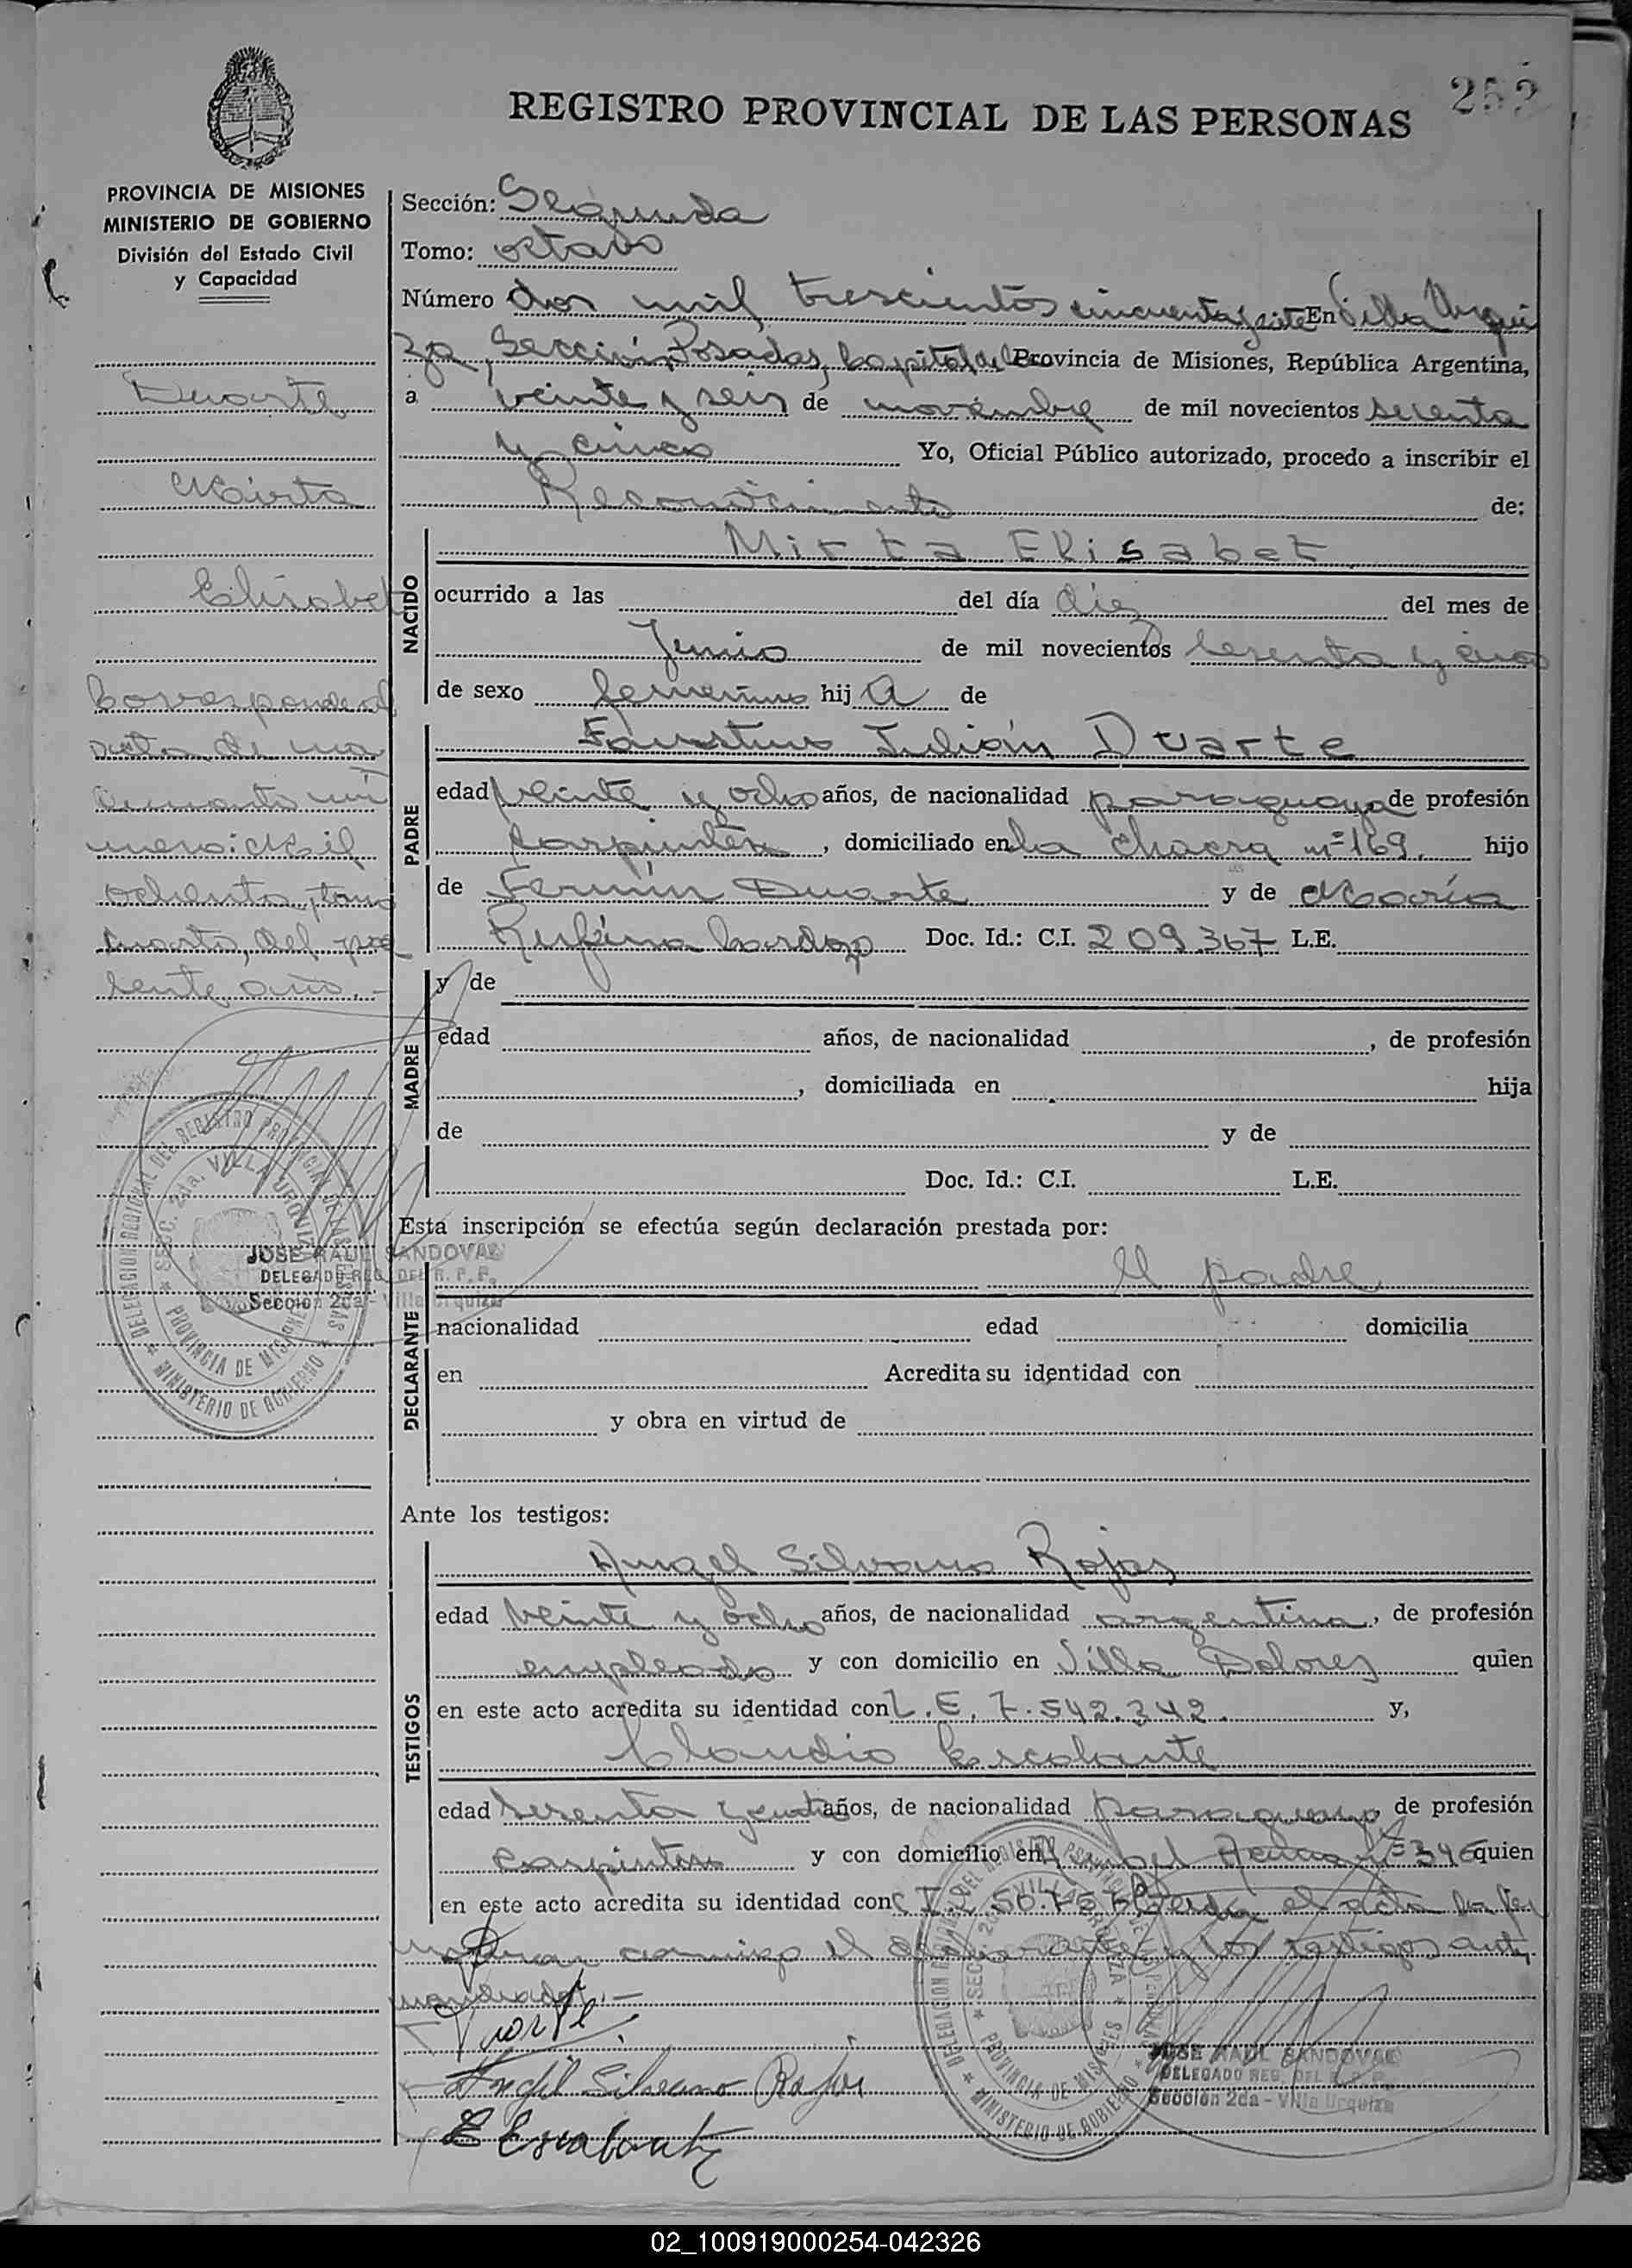 252
REGISTRO PROVINCIAL DE LAS PERSONAS
PROVINCIA DE MISIONES
MINISTERIO DE GOBIERNO
División del Estado Civil
y Capacidad
Duarte
Mirta
Elisabet
Corresponde al
acta de na
cimiento nú
mero: Mil
ochenta, tomo
cuarto, del pre
sente año.-
DELEGACION REGIONAL DEL REGISTRO PROVINCIAL DE LAS PERSONAS
SEC. 2da. VILLA URQUIZA
PROVINCIA DE MISIONES
MINISTERIO DE GOBIERNO
JOSE RAUL SANDOVAL
DELEGADO REG. DEL R. P. P.
Sección 2da - Villa Urquiza
Sección: Segunda
Tomo: octavo
Número dos mil trescientos cincuenta y siete En Villa Urqui
za, Sección Posadas, Capital de la Provincia de Misiones, República Argentina,
a veinte y seis de noviembre de mil novecientos sesenta
y cinco Yo, Oficial Público autorizado, procedo a inscribir el
Reconocimiento de:
NACIDO
Mirta Elisabet
ocurrido a las del día diez del mes de
Junio de mil novecientos sesenta y cinco
de sexo femenino hij a de
PADRE
Faustino Julián Duarte
edad veinte y ocho años, de nacionalidad paraguaya de profesión
carpintero, domiciliado en la Chacra nº 169. hijo
de Fermín Duarte y de María
Rufina Cardozo Doc. Id.: C.I. 209.367 L.E.
MADRE
y de
edad años, de nacionalidad , de profesión
, domiciliada en hija
de y de
Doc. Id.: C.I. L.E.
Esta inscripción se efectúa según declaración prestada por:
DECLARANTE
El padre
nacionalidad edad domicilia
en Acredita su identidad con
y obra en virtud de
Ante los testigos:
TESTIGOS
Angel Silvano Rojas
edad veinte y ocho años, de nacionalidad argentina, de profesión
empleado y con domicilio en Villa Dolores quien
en este acto acredita su identidad con L.E. 7.542.342. y,
Claudio Escalante
edad sesenta y cuatro años, de nacionalidad paraguaya de profesión
carpintero y con domicilio en Angel Acuña nº 346 quien
en este acto acredita su identidad con C.I. el acta la fir
man conmigo el declarante y los testigos ante
mencionados.-
Duarte
Angel Silvano Rojas
C Escalante
DELEGACION REGIONAL DEL REGISTRO PROVINCIAL DE LAS PERSONAS
SEC. 2da. VILLA URQUIZA
PROVINCIA DE MISIONES
MINISTERIO DE GOBIERNO
JOSE RAUL SANDOVAL
DELEGADO REG. DEL R. P. P.
Sección 2da - Villa Urquiza
02_100919000254-042326